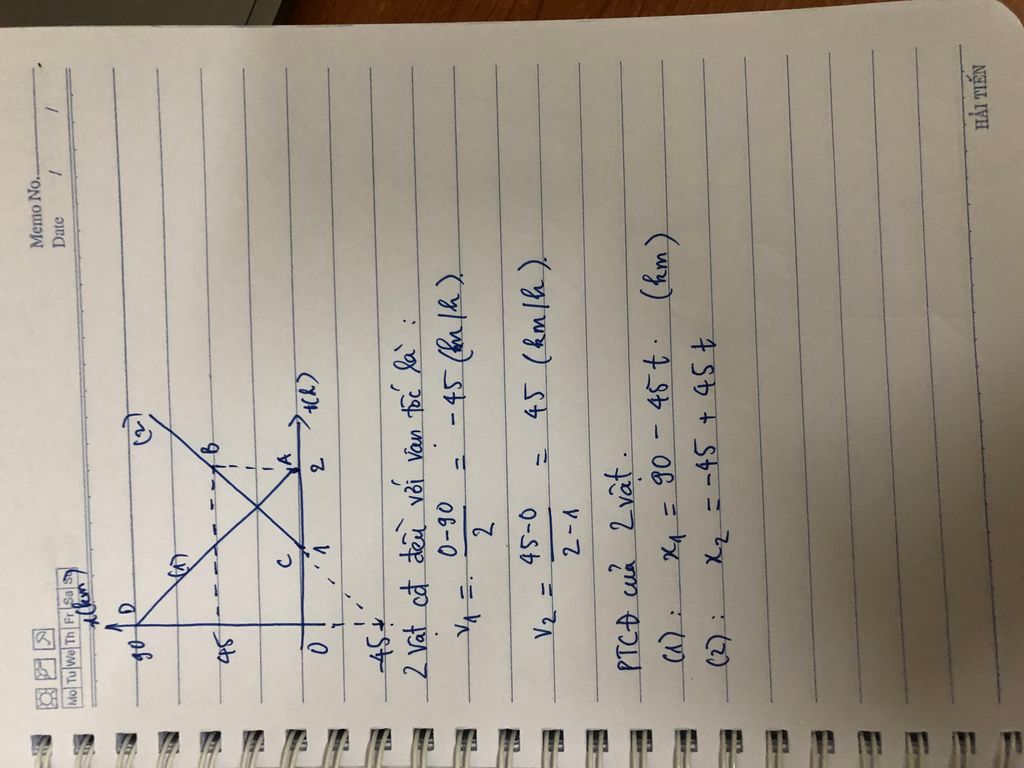 Memo No.
Date / /
Mo Tu We Th Fr Sa Su
x(km)
90 D
(1)
(2)
45
B
C
A
0
1
2
t(h)
-45
2 vật cđ đều với vận tốc là:
v1 = 0-90/2 = -45 (km/h).
v2 = 45-0/2-1 = 45 (km/h).
PTCĐ của 2 vật.
(1): x1 = 90 - 45t. (km)
(2): x2 = -45 + 45t
HẢI TIẾN